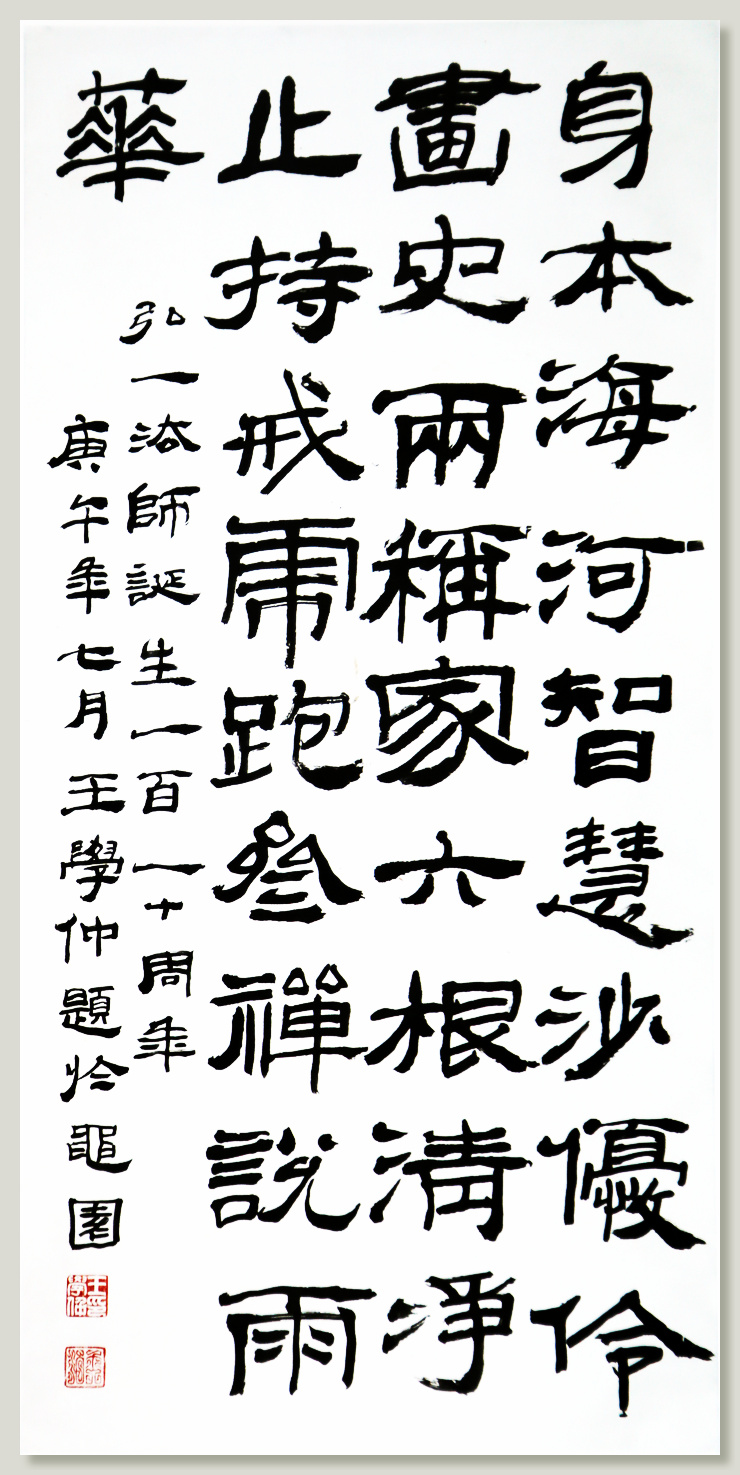 身本海河智慧沙優伶
畫史兩稱家六根清淨
止持戒虎跑叄禪說雨
華
弘一法師誕生一百一十周年
庚午年七月王學仲題於黽園